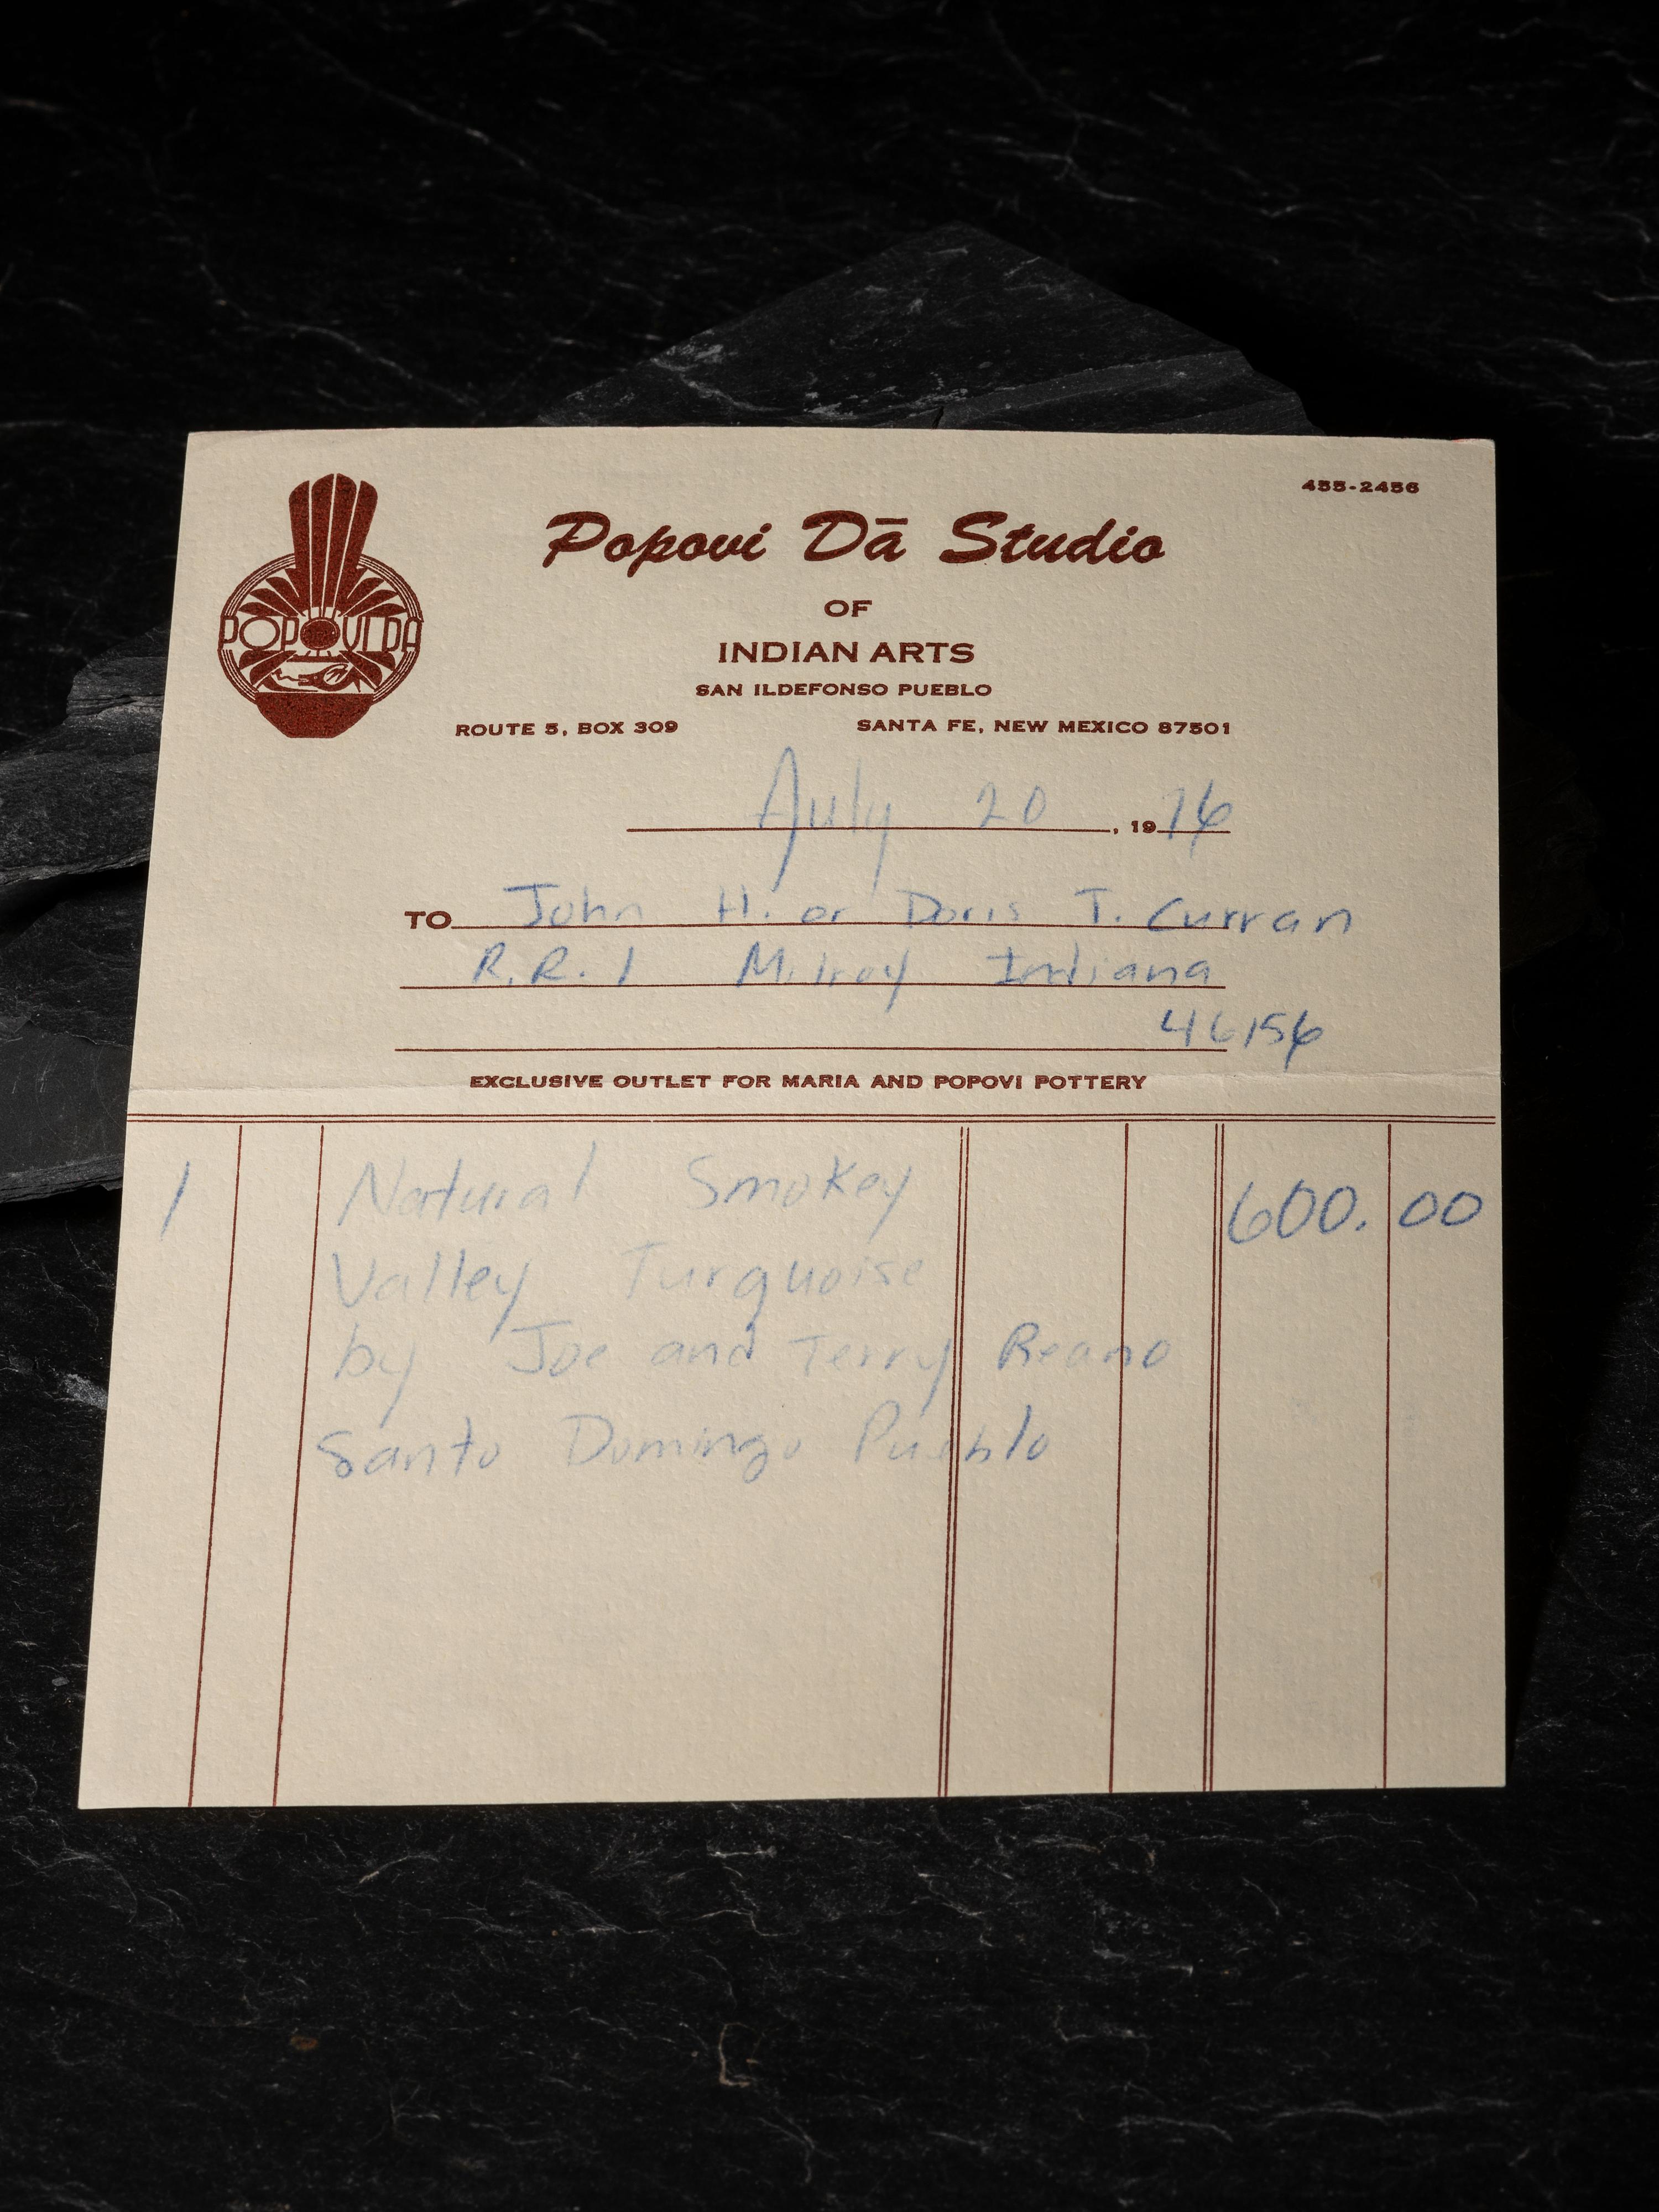 455-2456
Popovi Dā Studio
POPOVI DA
OF
INDIAN ARTS
SAN ILDEFONSO PUEBLO
ROUTE 5, BOX 309 SANTA FE, NEW MEXICO 87501
July 20, 1976
TO John H. or Doris T. Curran
R.R. 1 Milroy Indiana
46156
EXCLUSIVE OUTLET FOR MARIA AND POPOVI POTTERY
1 Natural Smokey 600.00
Valley Turquoise
by Joe and Terry Reano
Santo Domingo Pueblo